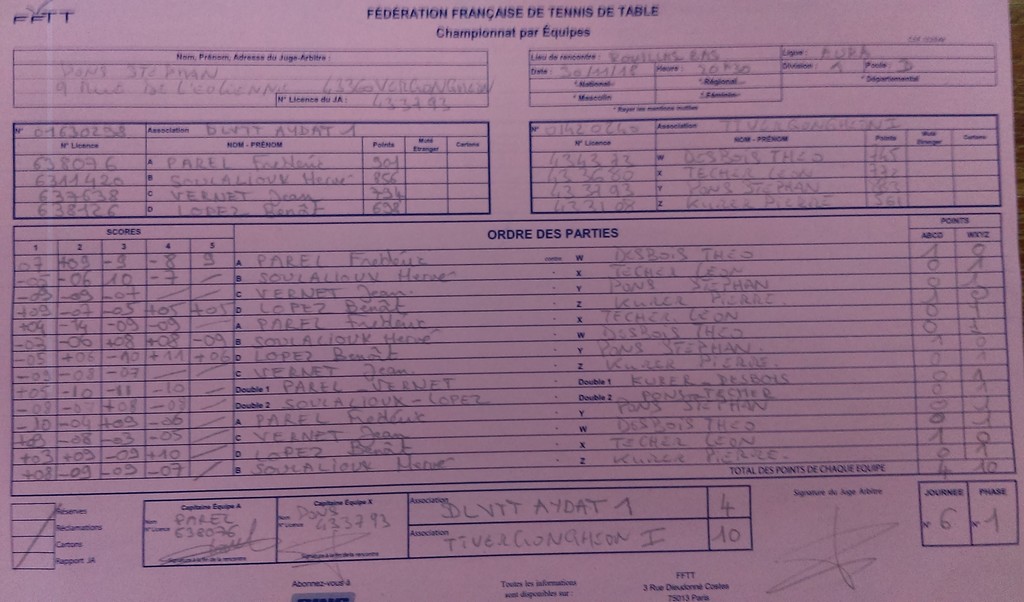 FFTT
FÉDÉRATION FRANÇAISE DE TENNIS DE TABLE
Championnat par Équipes
Nom, Prénom, Adresse du Juge-Arbitre :
PONS STEPHAN
9 RUE DE 43360 VERGONGHEON
N° Licence du JA : 433793
Lieu de rencontre : ROUILLAS BAS Ligue : AURA
Date : 30/11/18 Heure : 20H30 Division : 1 Poule : D
* National * Régional * Départemental
* Masculin * Féminin
* Rayer les mentions inutiles
N° 01630298 Association DLVTT AYDAT 1
N° Licence NOM - PRÉNOM Points Muté Etranger Cartons
638076 A PAREL Frédéric 901
6311420 B SOULALIOUX Hervé 856
637638 C VERNET Jean 794
638126 D LOPEZ Benoît 698
N° 01420240 Association TIVERGONGHEON I
N° Licence NOM - PRÉNOM Points Muté Etranger Cartons
W DESBOIS THEO
X TECHER LEON
433793 Y PONS STEPHAN
Z KURER PIERRE
SCORES ORDRE DES PARTIES POINTS
1 2 3 4 5 ABCD WXYZ
07 +09 -9 -8 9 A PAREL Frédéric contre W DESBOIS THEO 1 0
-06 10 -7 B SOULALIOUX Hervé X TECHER LEON 0 1
-09 -07 C VERNET Jean Y PONS STEPHAN 0 1
+09 -07 -05 +05 +05 D LOPEZ Benoît Z KURER PIERRE 1 0
+04 -14 -09 -09 A PAREL Frédéric X TECHER LEON 0 1
-06 +08 +08 -09 B SOULALIOUX Hervé W DESBOIS THEO 0 1
-05 +06 -10 +11 +06 D LOPEZ Benoît Y PONS STEPHAN 1 0
-09 -08 -07 C VERNET Jean Z KURER PIERRE 0 1
+05 -10 -11 -10 Double 1 PAREL - VERNET Double 1 KURER - DESBOIS 0 1
-08 -07 +08 -08 Double 2 SOULALIOUX - LOPEZ Double 2 PONS - TECHER 0 1
-10 -04 +09 -06 A PAREL Frédéric Y PONS STEPHAN 0 1
+09 -08 -03 -05 C VERNET Jean W DESBOIS THEO 0 1
+03 +09 -09 +10 D LOPEZ Benoît X TECHER LEON 1 0
+08 -09 -09 -07 B SOULALIOUX Hervé Z KURER PIERRE 0 1
TOTAL DES POINTS DE CHAQUE EQUIPE 4 10
Réserves
Réclamations
Cartons
Rapport JA
Capitaine Équipe A
Nom PAREL
N° Licence 638076
Signature à la fin de la rencontre
Capitaine Équipe X
Nom PONS
N° Licence 433793
Signature à la fin de la rencontre
Association DLVTT AYDAT 1 4
Association TIVERGONGHEON I 10
Signature du Juge Arbitre
JOURNEE PHASE
N° 6 N° 1
Abonnez-vous à
Toutes les informations
sont disponibles sur :
FFTT
3 Rue Dieudonné Costes
75013 Paris